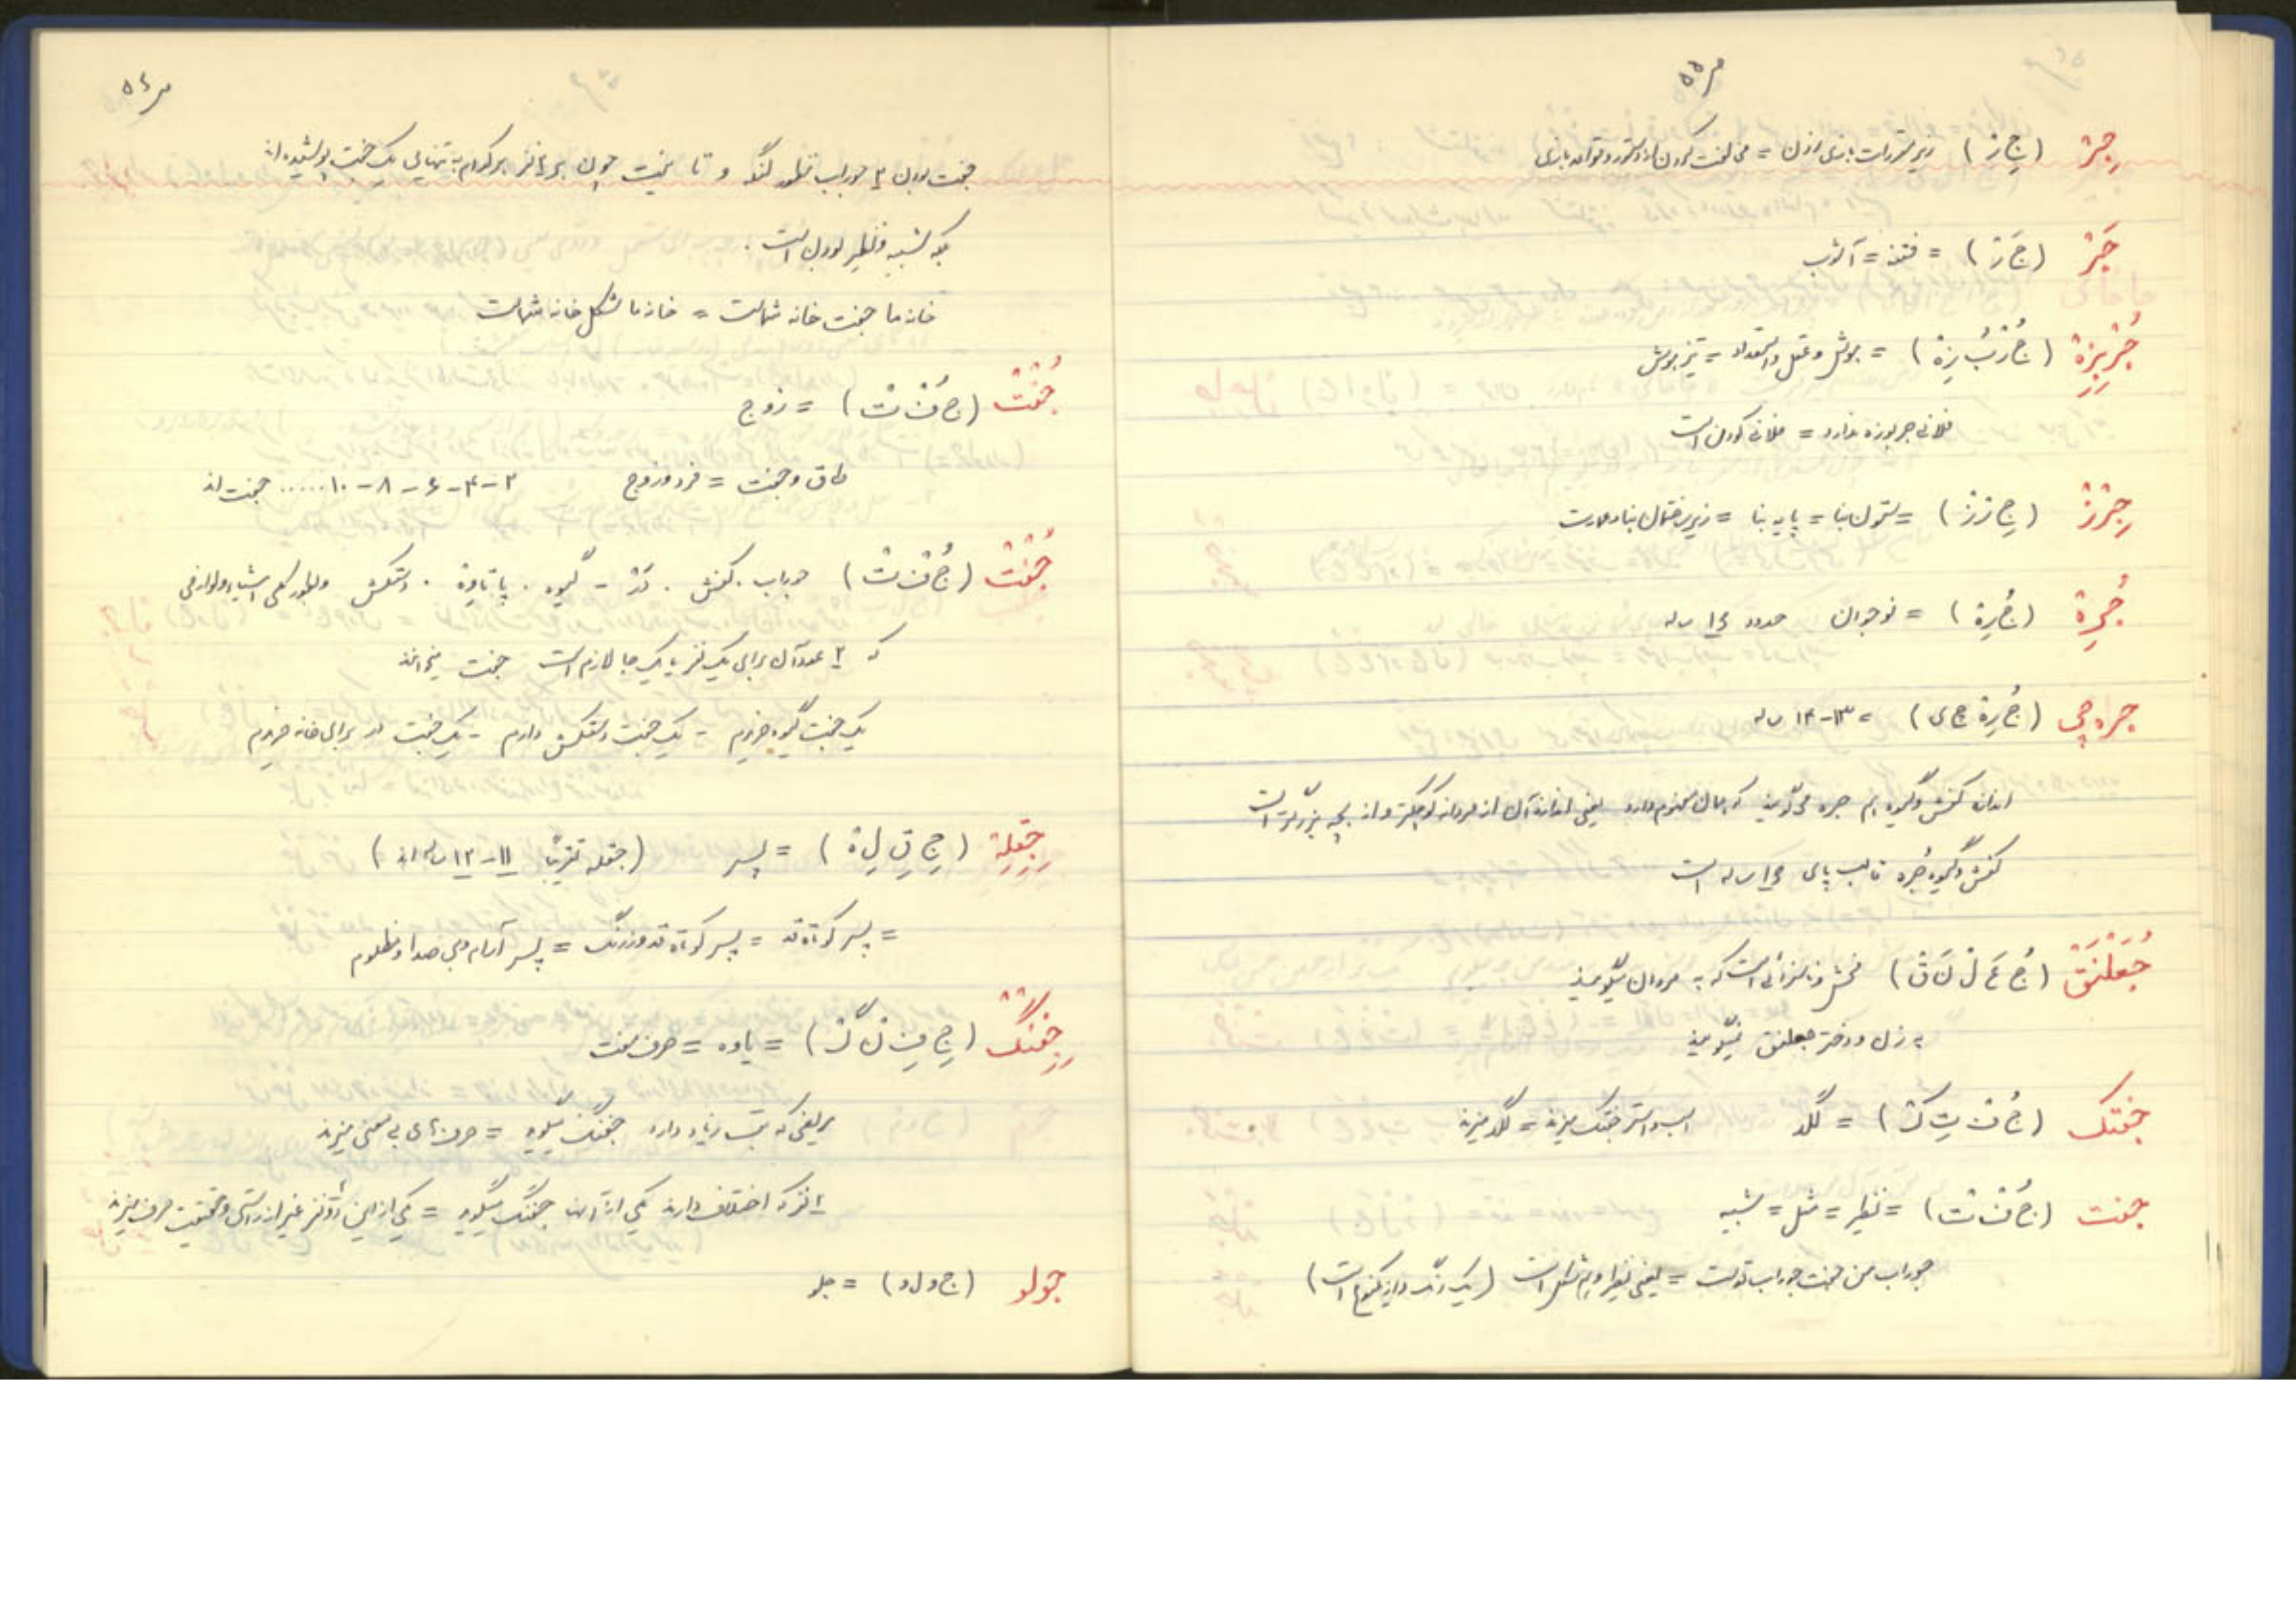 ص ۵۵
جِرْ (جِ رْ) = زیر مقررات بازی زدن = مخالفت کردن از دستور و قواعد بازی
جَرْ (جَ رْ) = فتنه = آشوب
جُرْبُزِه (جُ رْ بُ زِه) = هوش و عقل و استعداد = تیزهوش
فلانی جربوزه ندارد = فلانی کودن است
جِرْزْ (جِ رْ زْ) = ستون بنا = پایه بنا = زیر ساختمان بنا و عمارت
جُرِه (جُ رِه) = نوجوان حدود ۱۵ ساله
جره چی (جُ رِه چ ی) = ۱۳-۱۴ ساله
اندازه کفش و گیوه هم جره می‌گویند که همان مفهوم دارد یعنی اندازه آن از مردانه کوچکتر و از بچه بزرگتر است
کفش و گیوه جُره قالب پای ۱۵ ساله است
جُعَلْنَقْ (جُ عَ لْ نَ قْ) فحش و ناسزائی است که به مردان میگویند
به زن و دختر جعلنق نمیگویند
جفتک (جُ فْ تِ کْ) = لگد اسب و استر جفتک میزند = لگد میزند
جفت (جُ فْ تْ) = نظیر = مثل = شبیه
جوراب من جفت جوراب توست = یعنی نظیر و هم شکل است (یک رنگ و از یکنوع است)
ص ۵۶
جفت بودن ۲ جوراب منظور لنگه و تا نیست چون هر ۲ نفر هرکدام به تنهایی یک جفت پوشیده‌اند
بلکه شبیه و نظیر بودن است.
خانه ما جفت خانه شماست = خانه ما شکل خانه شماست
جُفْتْ (جُ فْ تْ) = زوج
طاق و جفت = فرد و زوج ۲-۴-۶-۸-۱۰..... جفت اند
جُفْتْ (جُ فْ تْ) جوراب. کفش. دَرْ - گیوه. پاتاوه. دستکش و بطور کلی اشیاء و لوازمی
که ۲ عدد آن برای یک نفر یا یک جا لازم است جفت میخوانند
یک جفت گیوه خریدم - یک جفت دستکش دارم - یک جفت در برای خانه خریدم
جِقِلِه (جِ قِ لِ ه) = پسر (جقله تقریباً ۱۱-۱۲ ساله اند)
= پسر کوتاه قد = پسر کوتاه قد و زرنگ = پسر آرام و بی صدا و مظلوم
جِفِنْگْ (جِ فِ نْ گْ) = یاوه = حرف مفت
مریضی که تب زیاد دارد جفنگ میگوید = حرفهای بی معنی میزند
۲ نفر که اختلاف دارند یکی از آنان جفنگ میگوید = یکی از این دو نفر غیر از راستی و حقیقت حرف میزند
جولو (ج و ل و) = جلو